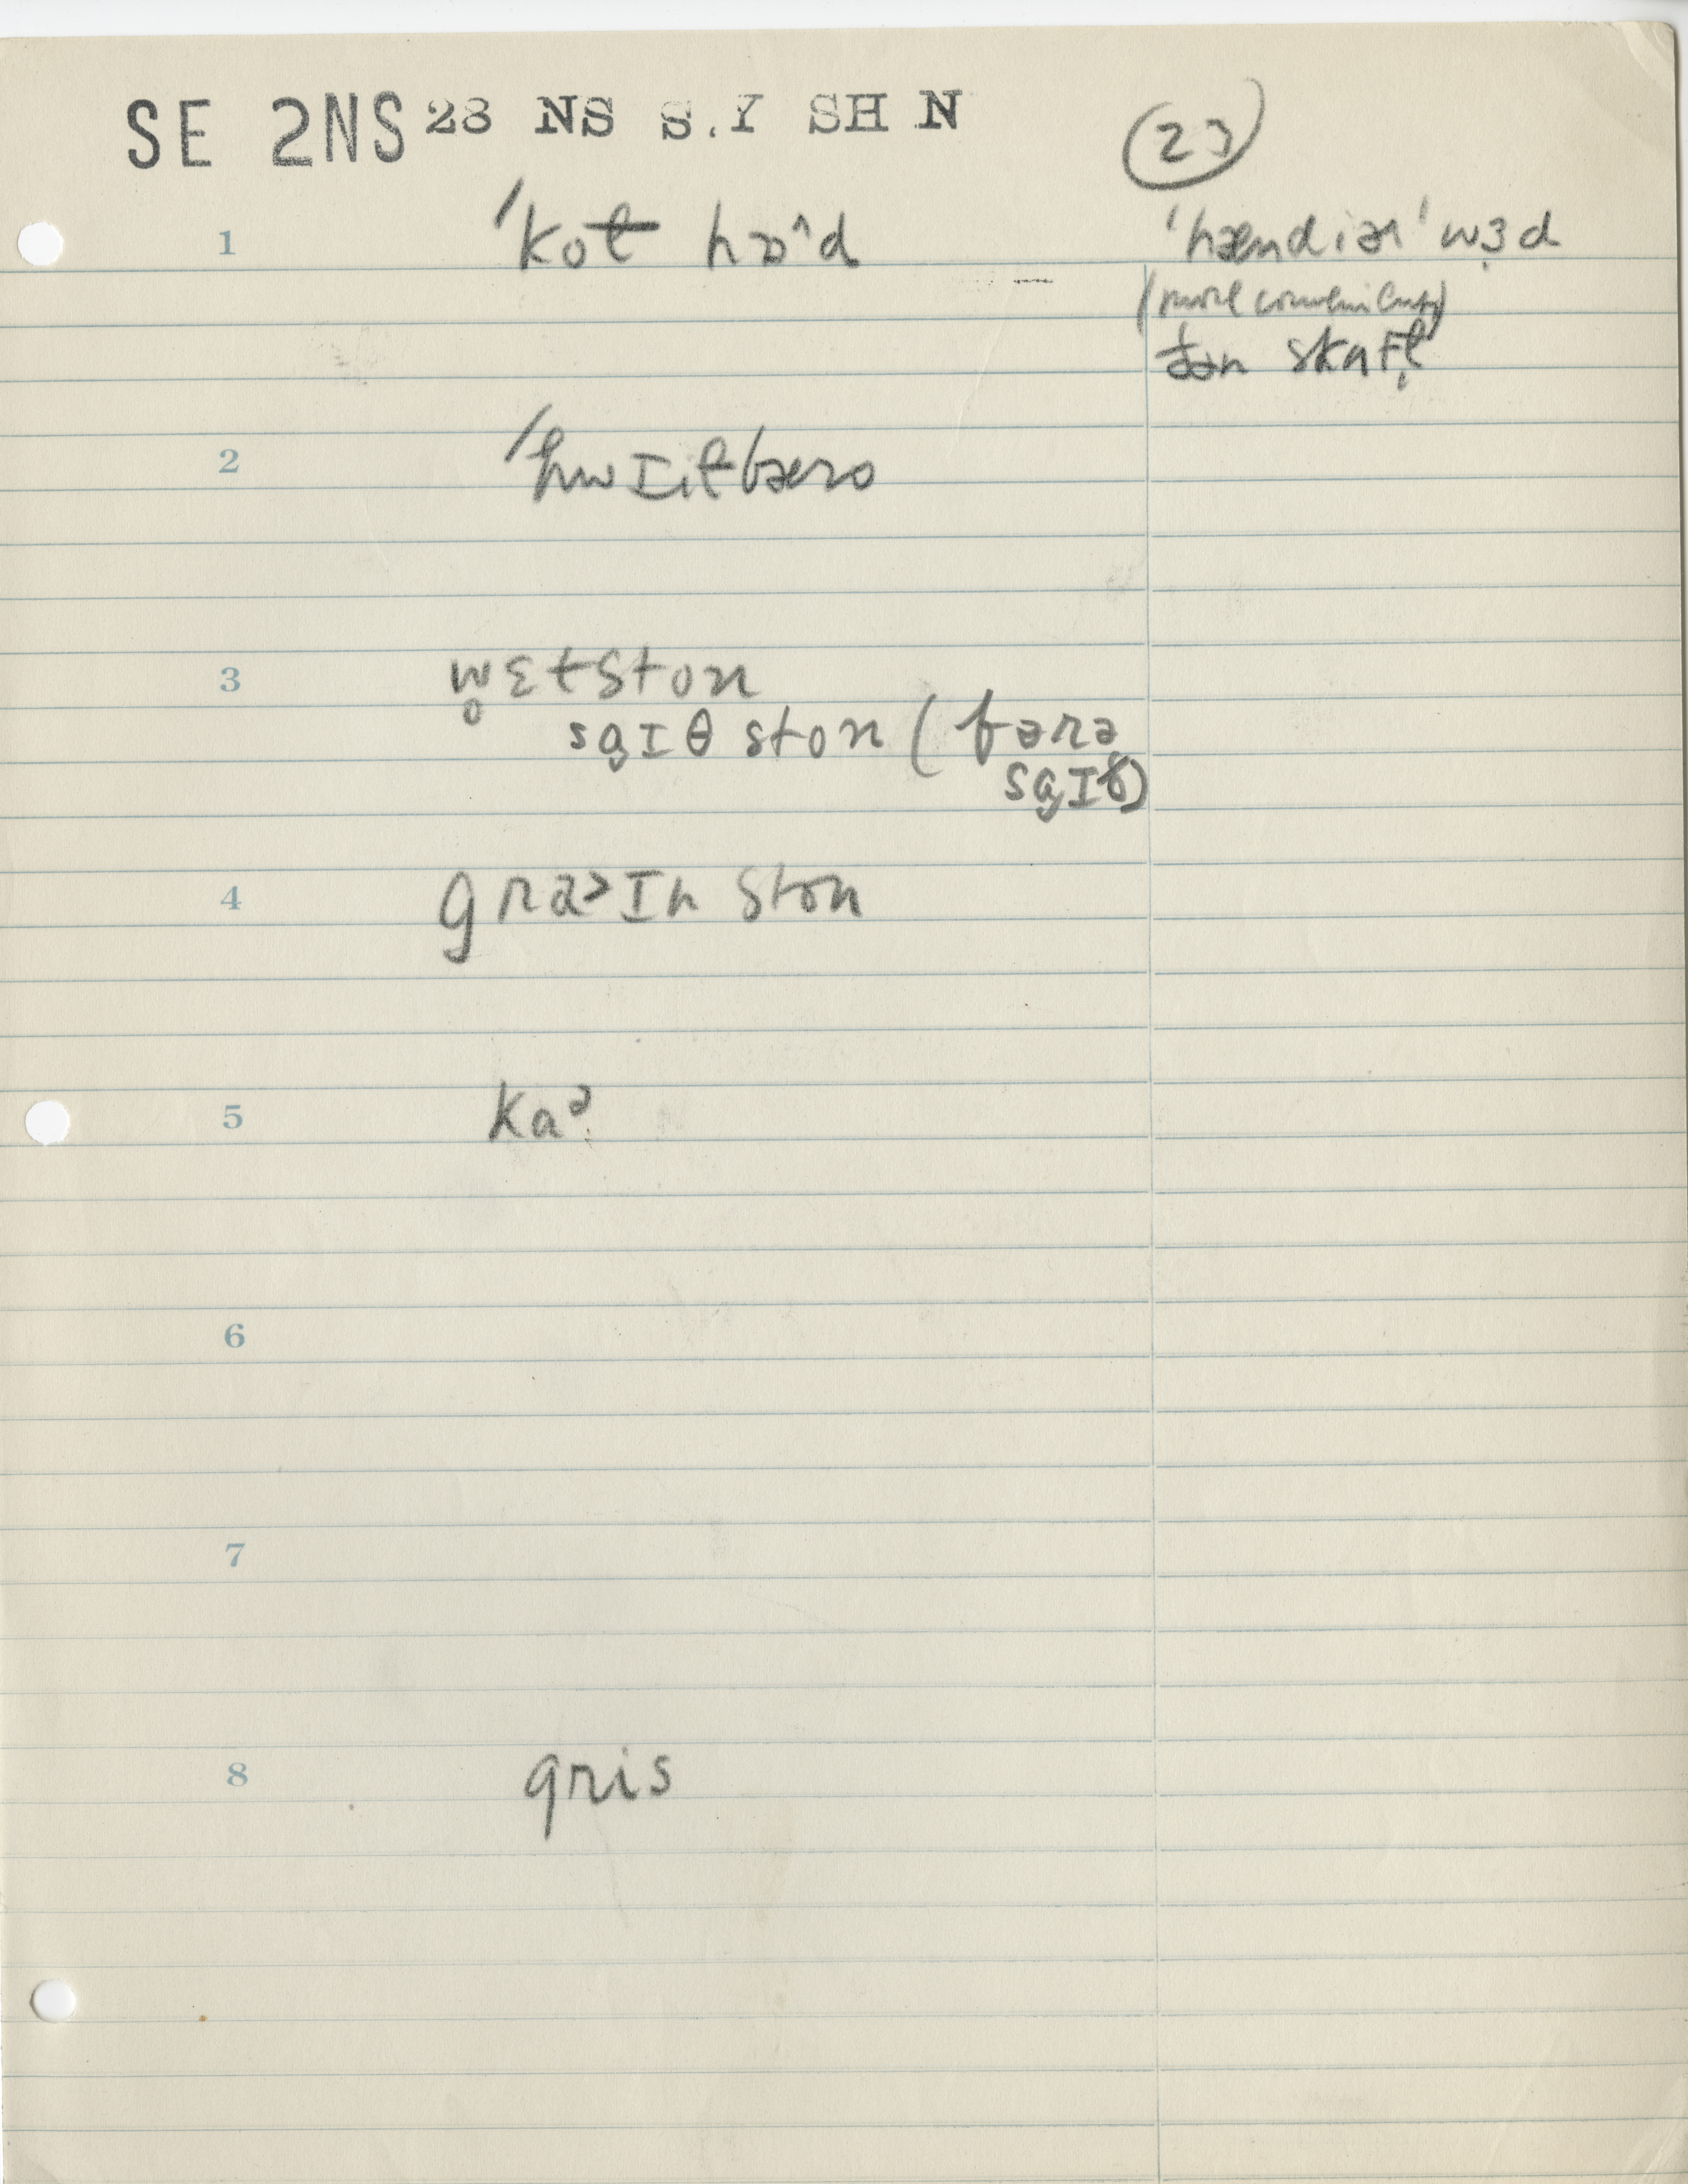 SE 2NS 28 NS S.Y SH N
23
1 ˈkot hɒ^d
ˈhændiərˈ wɜd
(more convenient)
ðən skafl̩
2 ˈhwɪltbæro
3 w̥ɛtston
sɡɪθ ston (fərə
sɡɪθ)
4 graɪn ston
5 kaə
6
7
8 gris